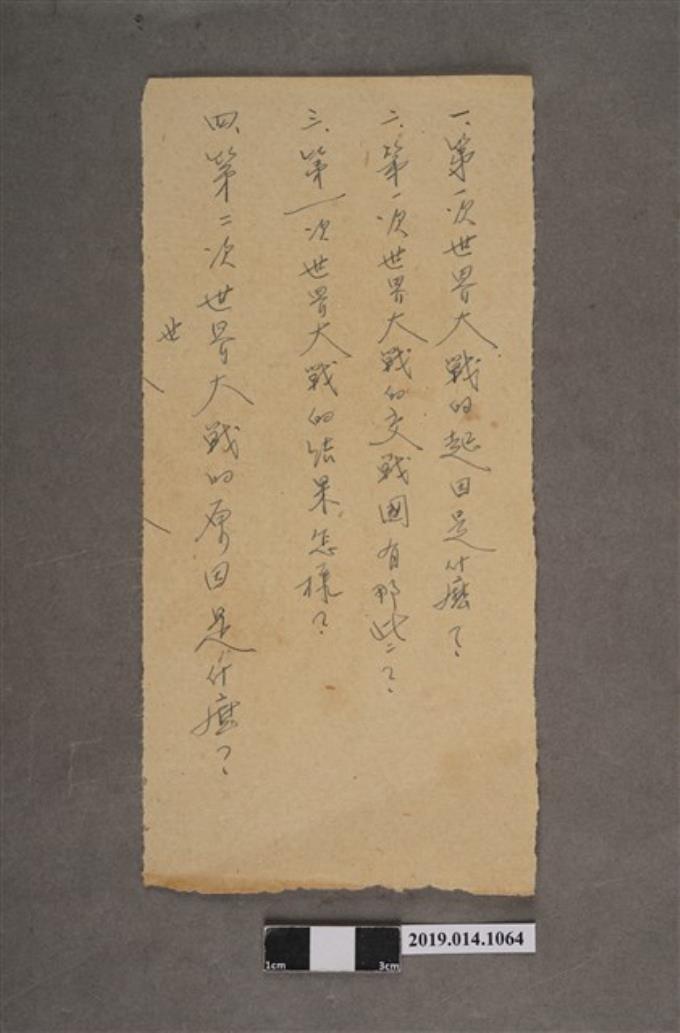 一、第一次世界大戰的起因是什麼？
二、第一次世界大戰的交戰國有那些？
三、第一次世界大戰的結果怎樣？
四、第二次世界大戰的原因是什麼？
世
1cm 3cm
2019.014.1064